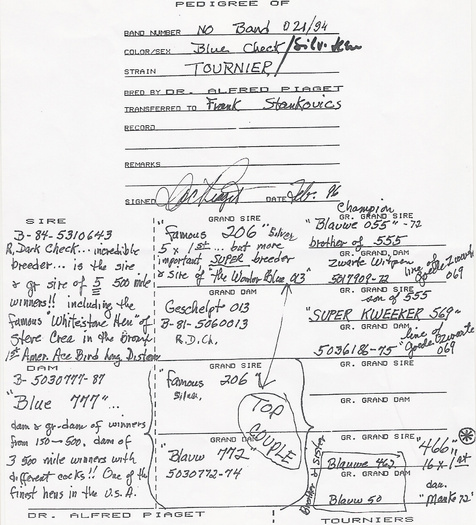 PEDIGREE OF
BAND NUMBER No Band 021/94
COLOR/SEX Blue Check/Silv. Hen
STRAIN TOURNIER
BRED BY DR. ALFRED PIAGET
TRANSFERRED TO Frank Stankovics
RECORD
REMARKS
SIGNED DATE Feb. 96
SIRE
B-84-5310643
R, Dark Check... incredible
breeder... is the sire
& gr sire of 5 500 mile
winners!! including the
famous "Whitestone Hen" of
Steve Crea in the Bronx
1st Amer. Ace Bird Long Distance
DAM
B- 5030777-87
"Blue 777"...
dam & gr-dam of winners
from 150→500, dam of
3 500 mile winners with
different cocks!! One of the
finest hens in the U.S.A.
GRAND SIRE
"Famous 206" Silver
5 x 1st... but more
important SUPER breeder
& sire of the "Wonder Blue 93"
GRAND DAM
Geschelpt 013
B-81-5060013
R.D.Ch.
GRAND SIRE
Famous 206
Silver,
TOP
COUPLE
GRAND DAM
"Blauw 772"
5030772-74
Champion
GR. GRAND SIRE
"Blauwe 055"-72
brother of 555
GR. GRAND DAM
Zwarte Witpen line of
5017909-72 Goede Zwarte
069
GR. GRAND SIRE
son of 555
"SUPER KWEEKER 569"
line of
5036186-75 "Goede Zwarte
069
GR. GRAND SIRE
GR. GRAND DAM
GR. GRAND SIRE "466"
Blauwe 462 16 x 1st
Brother & Sister
GR. GRAND DAM
Blauw 50 dau.
"Manke 72"
DR. ALFRED PIAGET TOURNIERS